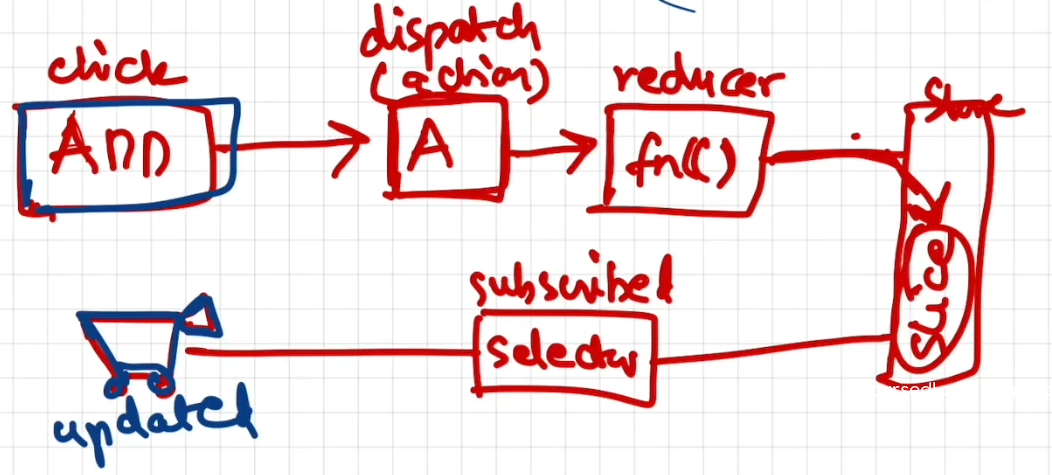 click
dispatch
(action)
reducer
Store
App
A
fn()
slice
subscribed
selector
updated